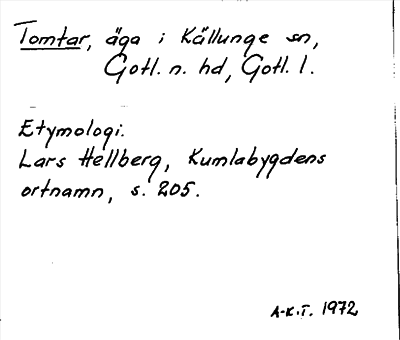 Tomtar, äga i Källunge sn,
Gotl. n. hd, Gotl. l.
Etymologi.
Lars Hellberg, Kumlabygdens
ortnamn, s. 205.
A-K.T. 1972